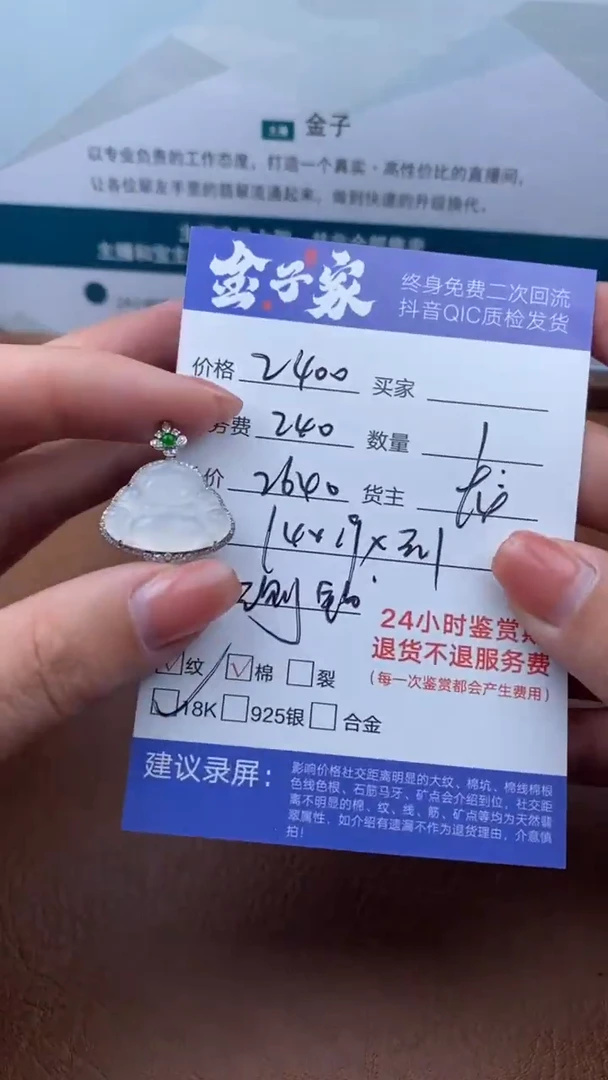 金子
以专业负责的工作态度，打造一个真实·高性价比的直播间，
让各位翠友手里的翡翠流通起来，做到快速的升级换代。
金子家
终身免费二次回流
抖音QIC质检发货
价格 2400 买家
务费 240 数量 1
价 2640 货主
14×19×
24小时鉴赏期
退货不退服务费
（每一次鉴赏都会产生费用）
纹 棉 裂
18K 925银 合金
建议录屏：
影响价格社交距离明显的大纹、棉坑、棉线棉根
色线色根、石筋马牙、矿点会介绍到位，社交距
离不明显的棉、纹、线、筋、矿点等均为天然翡
翠属性，如介绍有遗漏不作为退货理由，介意慎
拍！